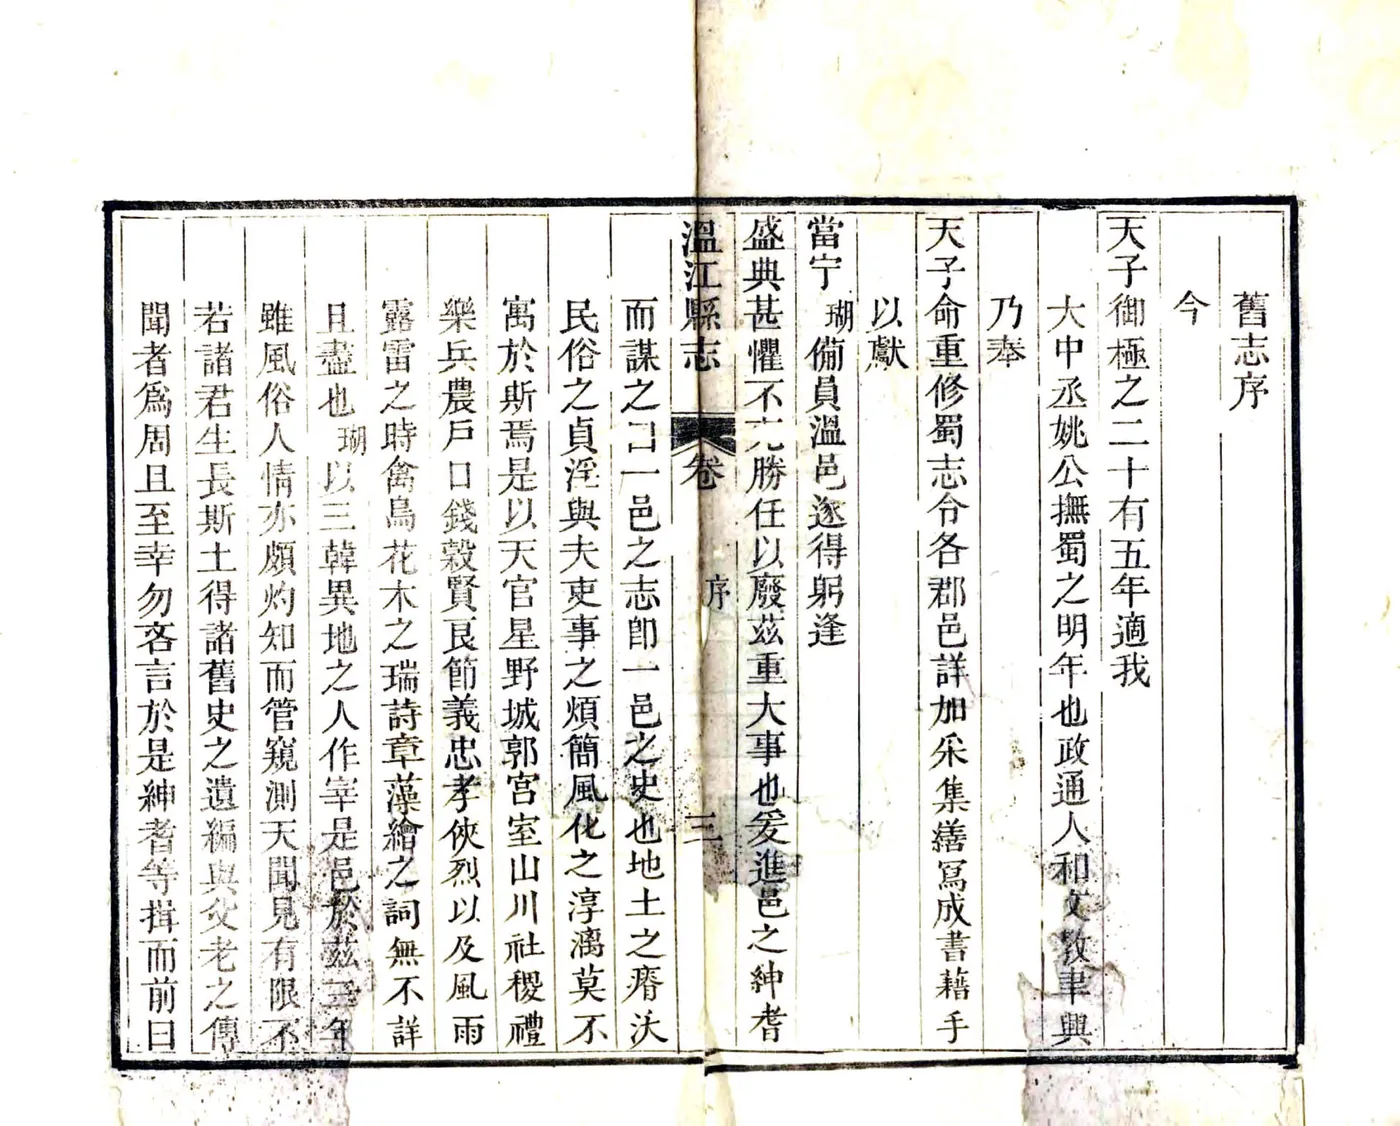 舊志序
今
天子御極之二十有五年適我
大中丞姚公撫蜀之明年也政通人和文敎聿興
乃奉
天子命重修蜀志令各郡邑詳加采集繕寫成書藉手
以獻
當宁瑚備員溫邑遂得躬逢
盛典甚懼不克勝任以廢茲重大事也爰進邑之紳耆
溫江縣志 卷 序 三
而謀之曰一邑之志卽一邑之史也地土之瘠沃
民俗之貞淫與夫吏事之煩簡風化之淳漓莫不
寓於斯焉是以天官星野城郭宮室山川社稷禮
樂兵農戸口錢穀賢良節義忠孝俠烈以及風雨
露雷之時禽鳥花木之瑞詩章藻繪之詞無不詳
且盡也瑚以三韓異地之人作宰是邑於茲三年
雖風俗人情亦頗灼知而管窺測天聞見有限不
若諸君生長斯土得諸舊史之遺編與父老之傳
聞者爲周且至幸勿吝言於是紳耆等揖而前曰